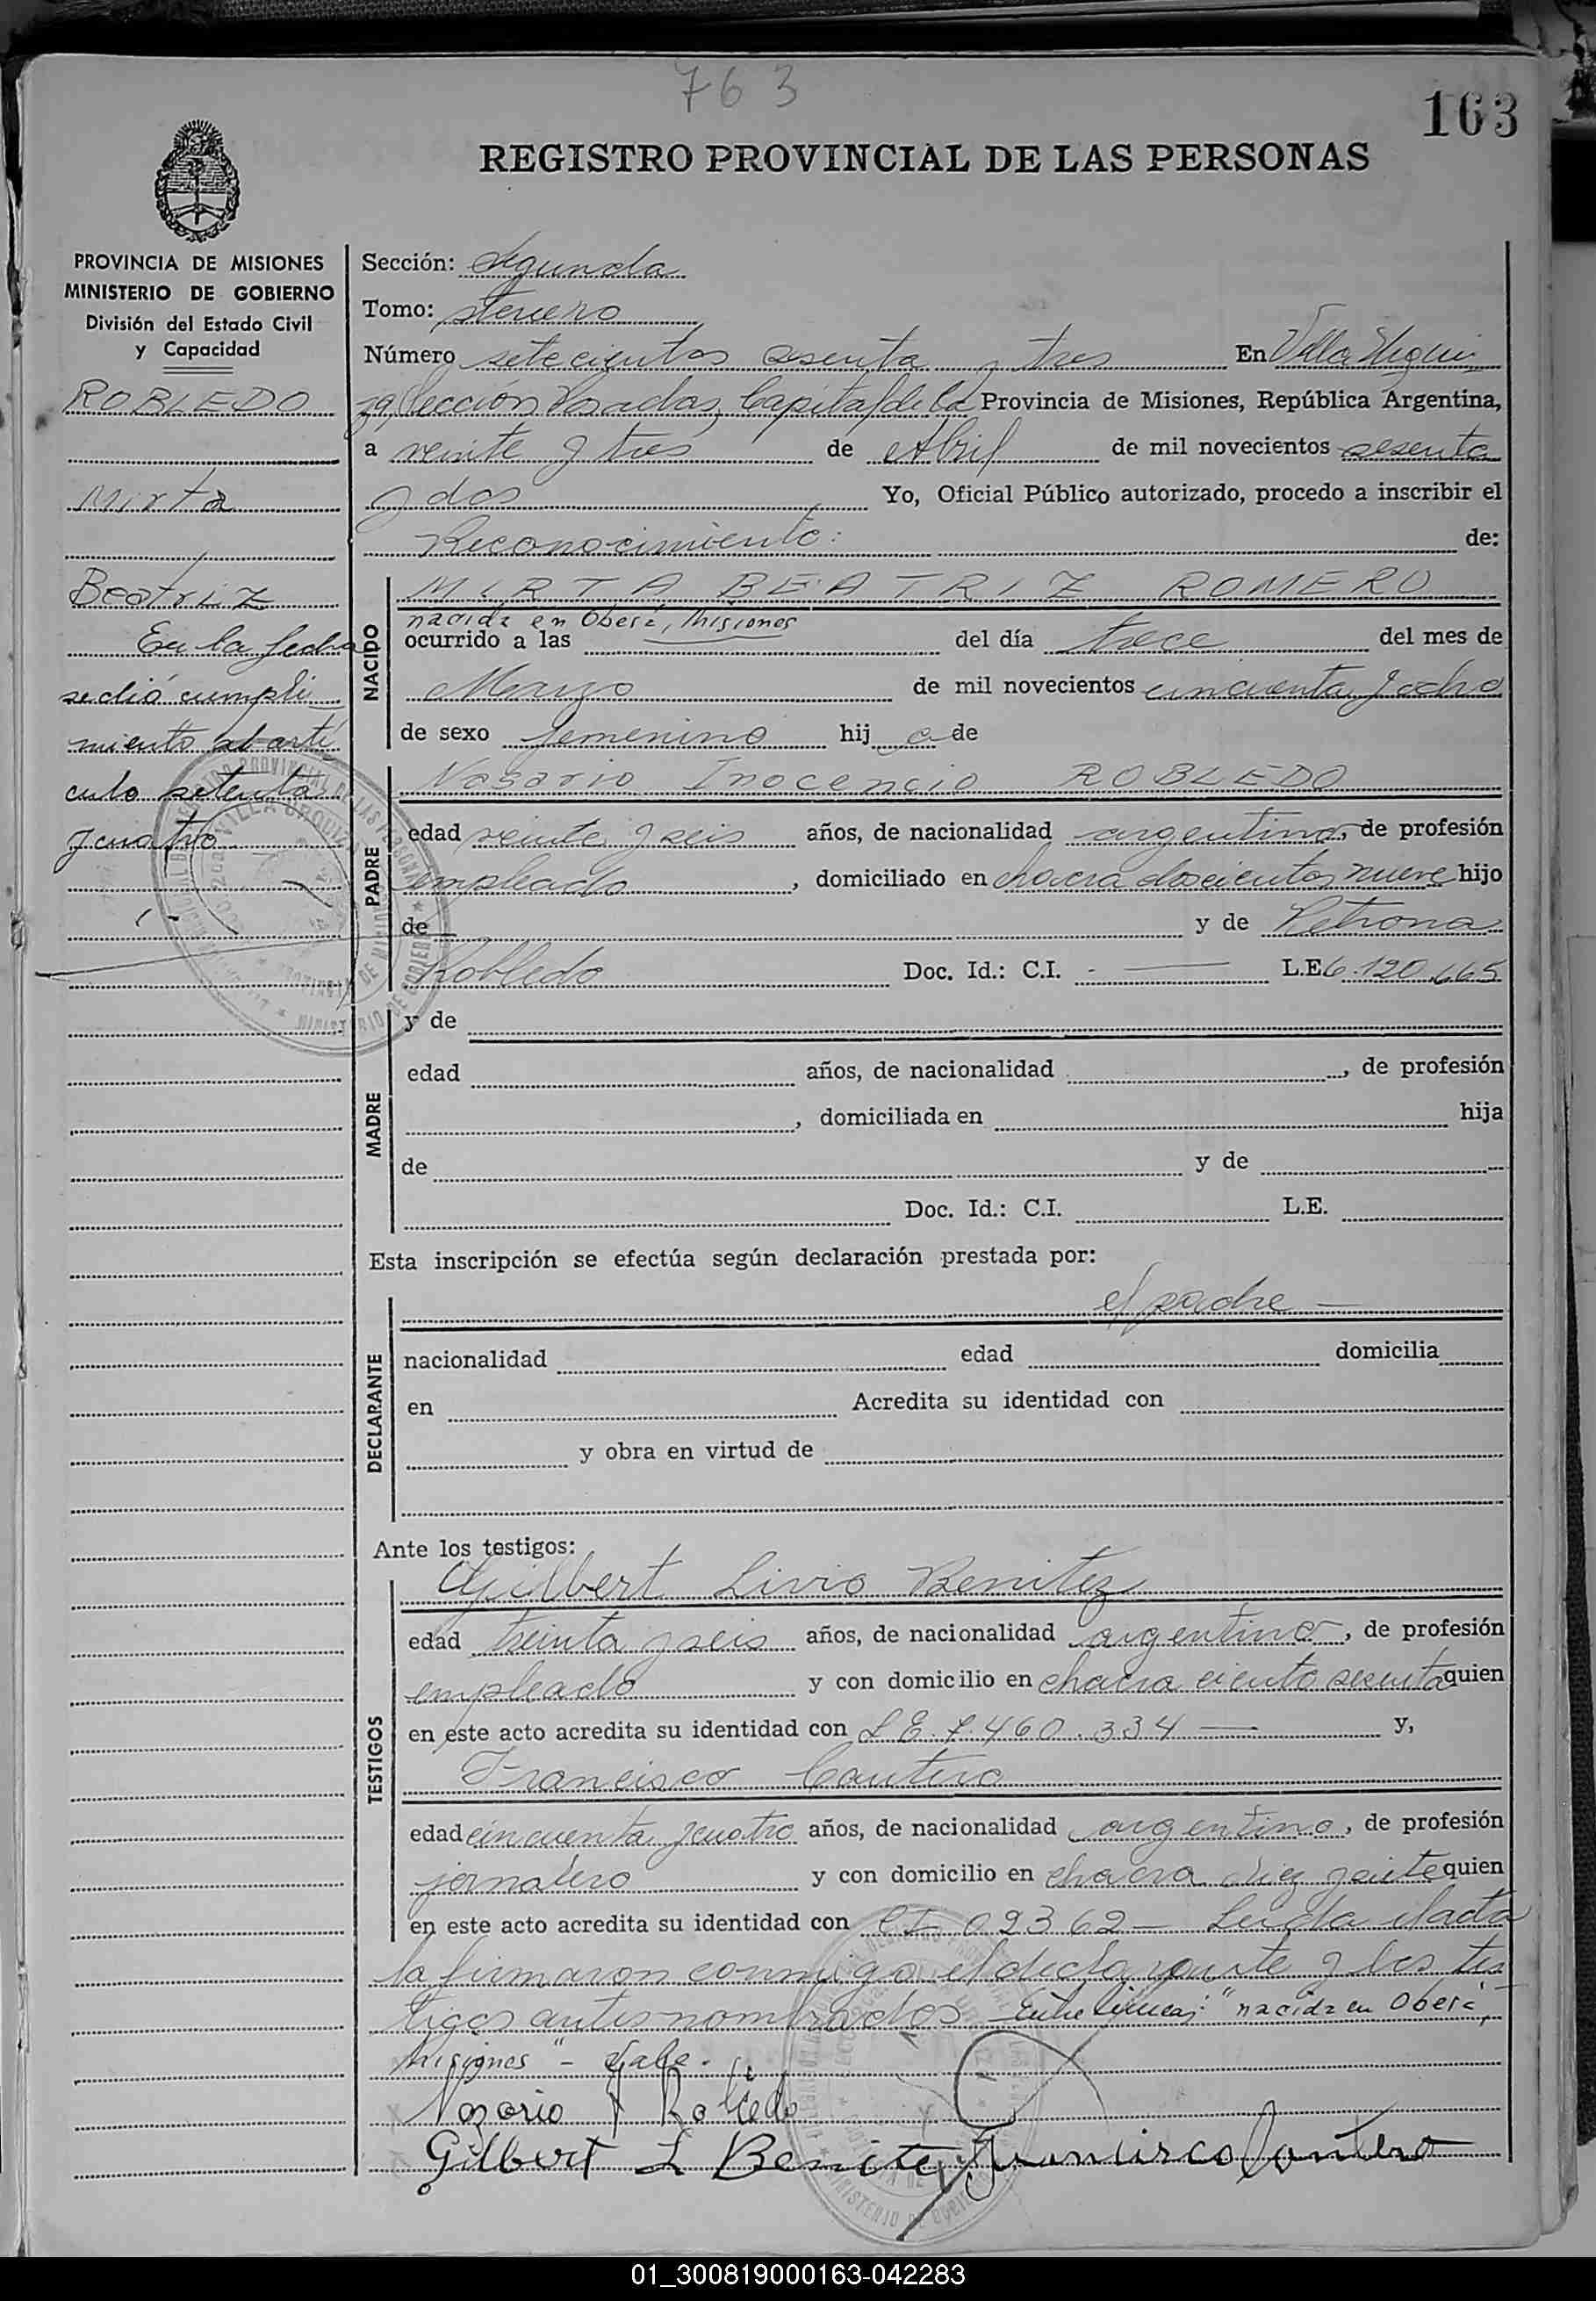 763
163
REGISTRO PROVINCIAL DE LAS PERSONAS
PROVINCIA DE MISIONES
MINISTERIO DE GOBIERNO
División del Estado Civil
y Capacidad
ROBLEDO
Mirta
Beatriz
En la fecha
se dió cumpli
miento al artí
culo setenta
y cuatro
Sección: Segunda
Tomo: tercero
Número setecientos sesenta y tres En Villa Urqui
za, Sección Posadas, Capital de la Provincia de Misiones, República Argentina,
a veinte y tres de Abril de mil novecientos sesenta
y dos Yo, Oficial Público autorizado, procedo a inscribir el
Reconocimiento: de:
NACIDO
MIRTA BEATRIZ ROMERO
nacida en Oberá, Misiones
ocurrido a las del día trece del mes de
Marzo de mil novecientos cincuenta y ocho
de sexo femenino hij a de
PADRE
Nasario Inocencio ROBLEDO
edad veinte y seis años, de nacionalidad argentina, de profesión
empleado, domiciliado en chacra doscientos nueve hijo
de y de Petrona
Robledo Doc. Id.: C.I. - — L.E. 6.120.665
MADRE
y de
edad años, de nacionalidad , de profesión
, domiciliada en hija
de y de
Doc. Id.: C.I. L.E.
Esta inscripción se efectúa según declaración prestada por:
DECLARANTE
el padre —
nacionalidad edad domicilia
en Acredita su identidad con
y obra en virtud de
Ante los testigos:
TESTIGOS
Gilbert Livio Benitez
edad treinta y seis años, de nacionalidad argentino, de profesión
empleado y con domicilio en chacra ciento sesenta quien
en este acto acredita su identidad con L E. 7.460.334 — y,
Francisco Cantero
edad cincuenta y cuatro años, de nacionalidad argentino, de profesión
jornalero y con domicilio en chacra diez y siete quien
en este acto acredita su identidad con CI 02362 — Leída el acta
la firmaron conmigo el declarante y los tes
tigos antes nombrados Entre líneas: "nacida en Oberá,
Misiones" - Vale.
Nazario I Robledo
Gilbert L Benitez Francisco Cantero
01_300819000163-042283